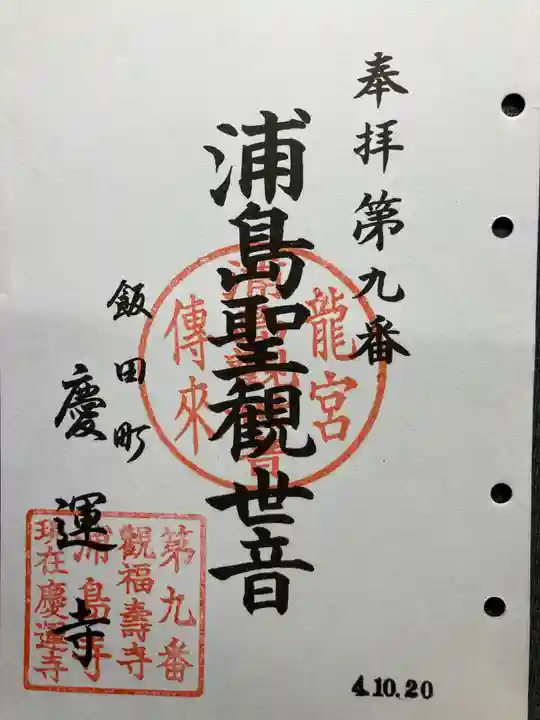 奉拝第九番
浦島聖観世音
飯田町
慶運寺
龍宮
浦島観世音
傳來
第九番
觀福壽寺
浦島寺
現在慶運寺
4.10.20